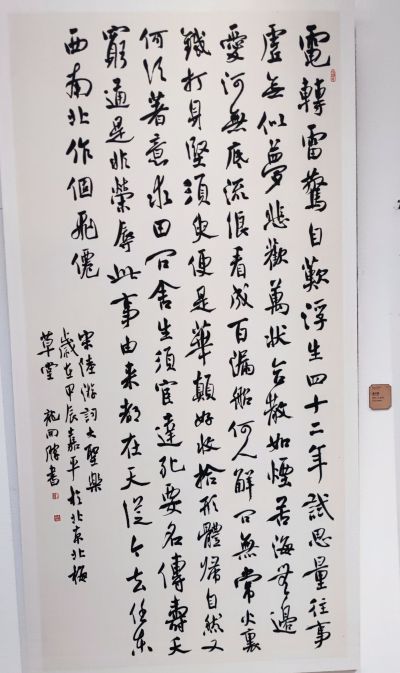 電轉雷驚自歎浮生四十二年試思量往事
虛无似夢悲歡萬狀合散如煙苦海無邊
愛河無底流浪看成百漏船何人解問無常火裏
鐵打身堅須臾便是華顛好收拾形體歸自然又
何須著意求田問舍生須宦達死要名傳壽夭
窮通是非榮辱此事由來都在天從今去任東
西南北作個飛僊
宋陸游詞大聖樂
歲在甲辰嘉平於北京北梅
草堂 書